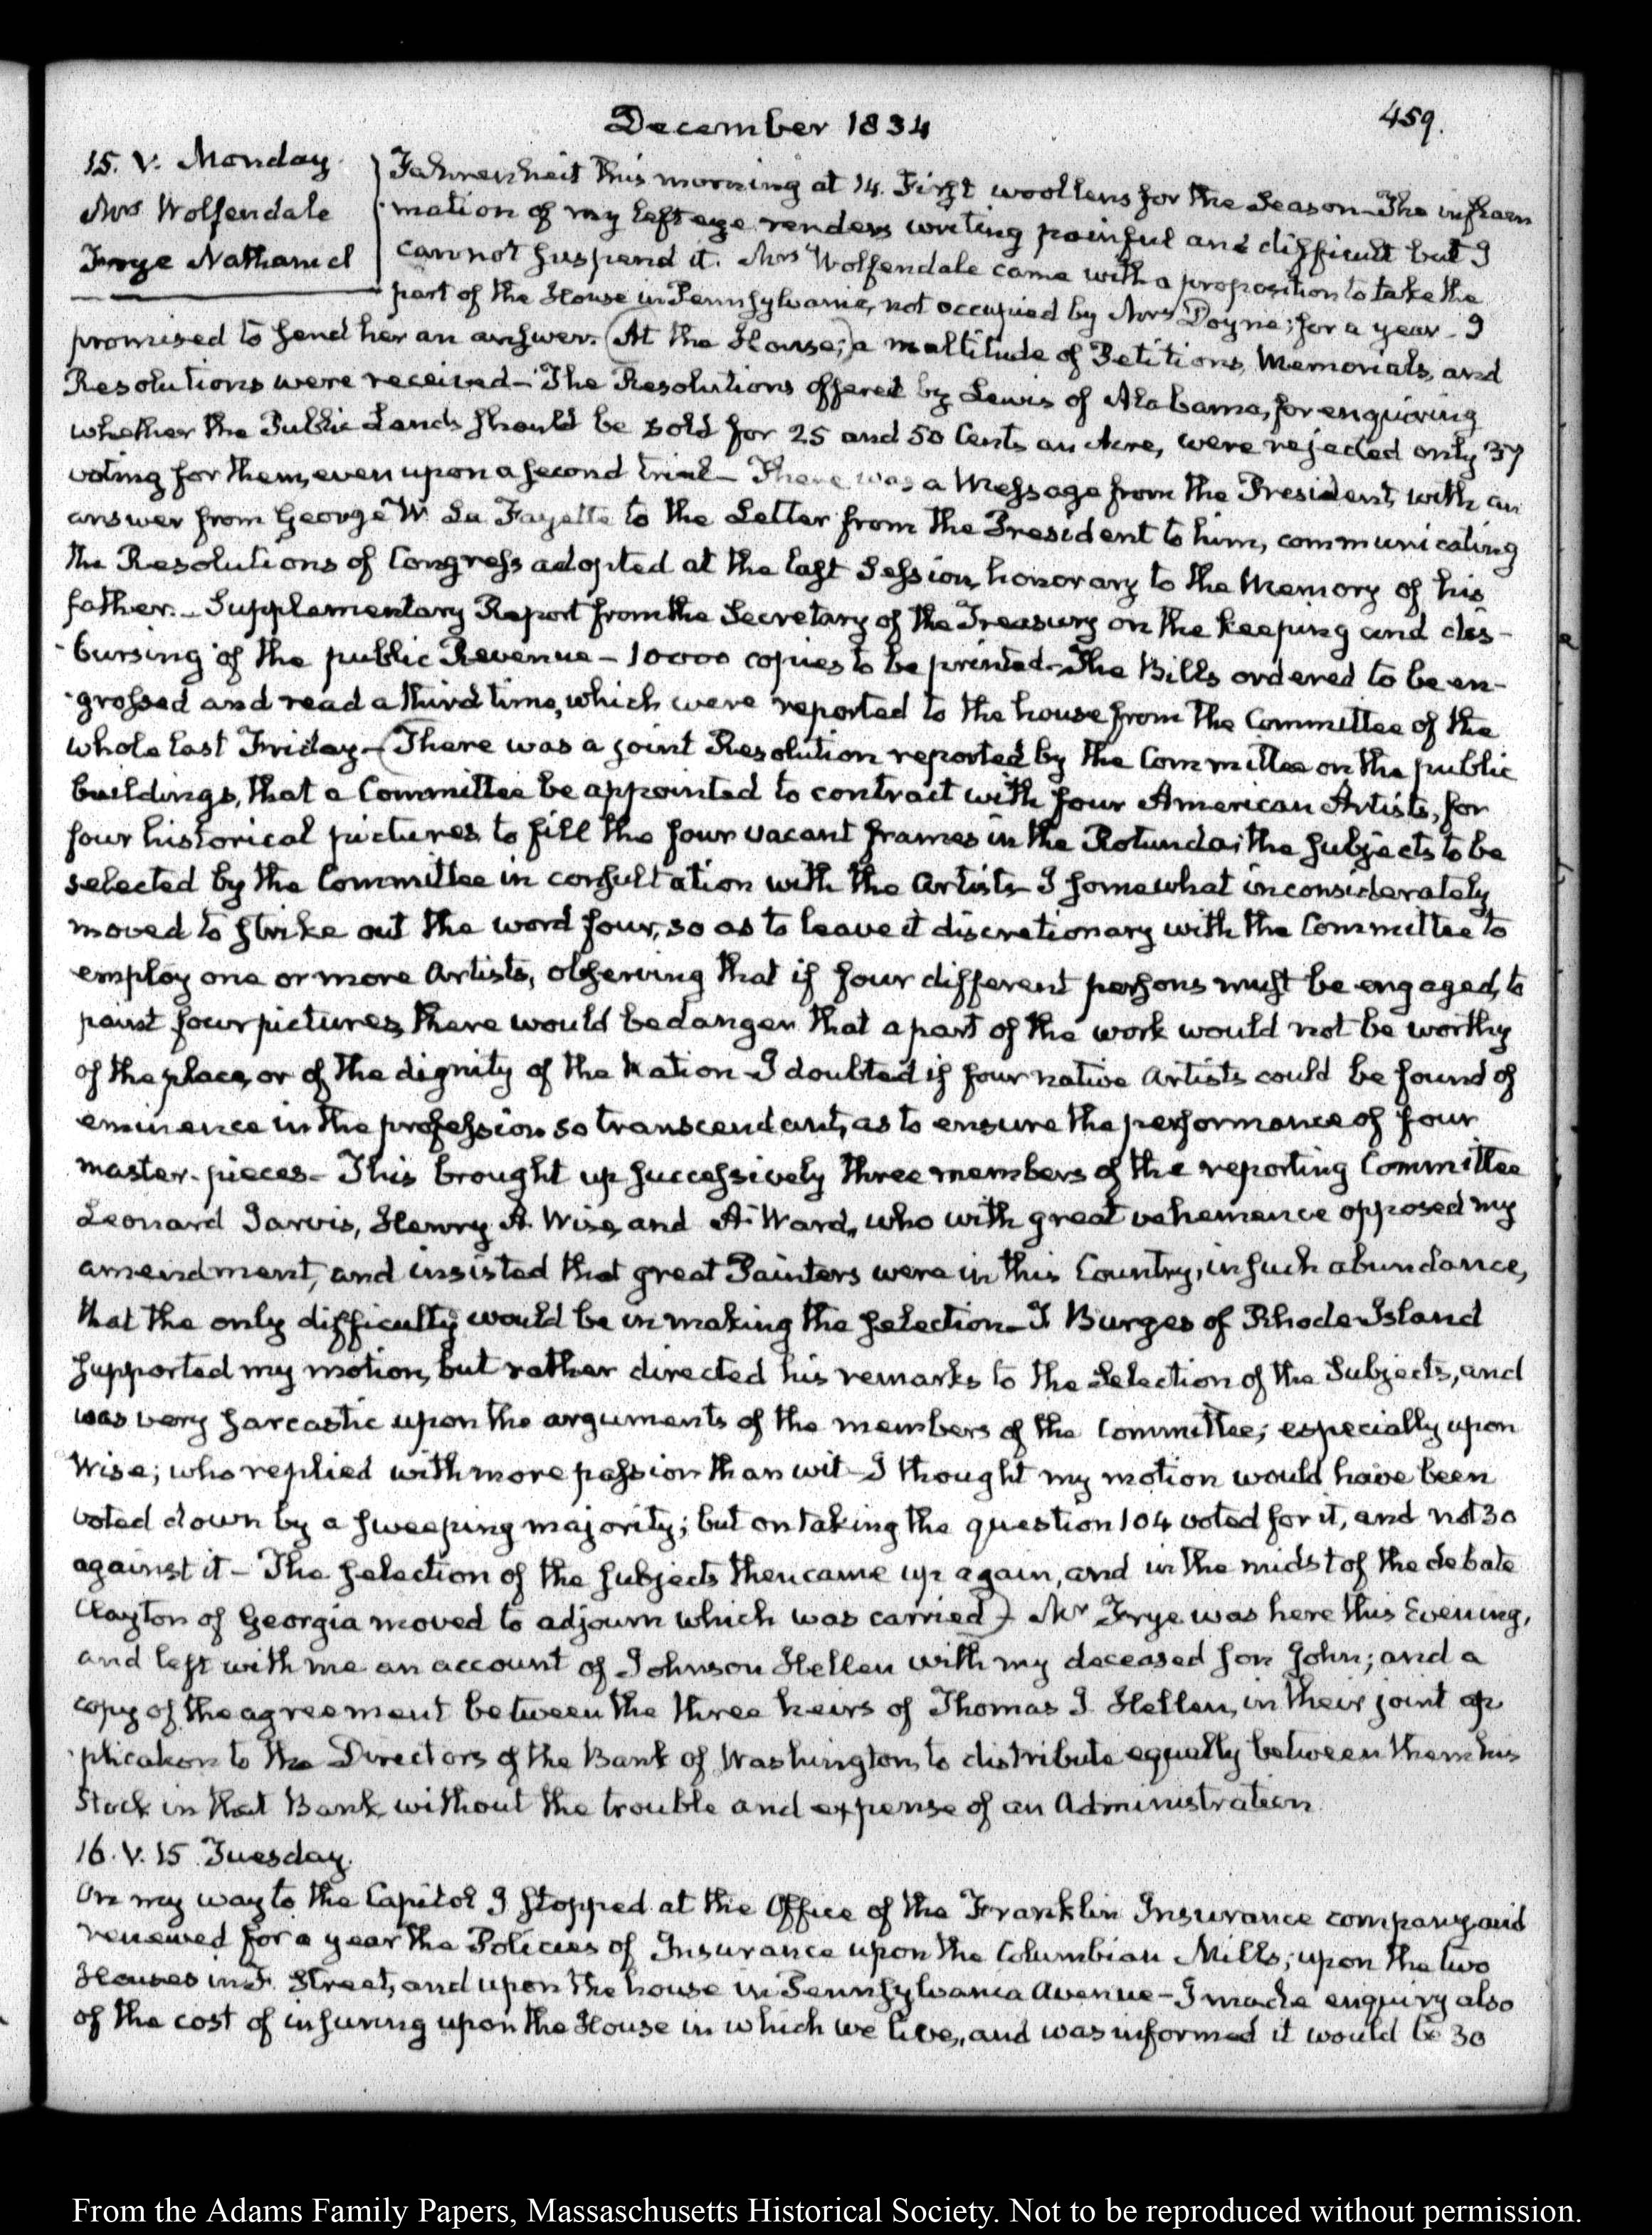 December 1834
459.
15. V. Monday.
Mrs Wolfendale
Frye Nathaniel
Fahrenheit this morning at 14. First woollens for the Season—The inflam
·mation of my left eye renders writing painful and difficult but I
cannot suspend it. Mrs Wolfendale came with a proposition to take the
part of the House in Pennsylvania, not occupied by Mrs Doyne; for a year. I
promised to send her an answer. (At the House;) a multitude of Petitions, Memorials, and
Resolutions were received—The Resolutions offered by Lewis of Alabama, for enquiring
whether the Public Lands should be sold for 25 and 50 Cents an Acre, were rejected only 37
voting for them, even upon a second trial—There was a Message from the President, with an
answer from George W. La Fayette to the Letter from the President to him, communicating
the Resolutions of Congress adopted at the last Session, honorary to the Memory of his
father.—Supplementary Report from the Secretary of the Treasury on the keeping and dis-
·bursing of the public Revenue—10000 copies to be printed—The Bills ordered to be en-
·grossed and read a third time, which were reported to the house from the Committee of the
whole last Friday—(There was a joint Resolution reported by the Committee on the public
buildings, that a Committee be appointed to contract with four American Artists, for
four historical pictures to fill the four vacant frames in the Rotunda; the subjects to be
selected by the Committee in consultation with the Artists—I somewhat inconsiderately
moved to strike out the word four, so as to leave it discretionary with the Committee to
employ one or more Artists, observing that if four different persons must be engaged, to
paint four pictures, there would be danger that a part of the work would not be worthy
of the place, or of the dignity of the Nation—I doubted if four native Artists could be found of
eminence in the profession so transcendant, as to ensure the performance of four
master-pieces—This brought up successively three members of the reporting Committee
Leonard Jarvis, Henry A. Wise, and A. Ward, who with great vehemence opposed my
amendment, and insisted that great Painters were in this Country, in such abundance,
that the only difficulty would be in making the selection—T Burges of Rhode-Island
supported my motion, but rather directed his remarks to the Selection of the Subjects, and
was very sarcastic upon the arguments of the members of the Committee; especially upon
Wise; who replied with more passion than wit—I thought my motion would have been
voted down by a sweeping majority; but on taking the question 104 voted for it, and not 30
against it—The selection of the subjects then came up again, and in the midst of the debate
Clayton of Georgia moved to adjourn which was carried)—Mr Frye was here this Evening,
and left with me an account of Johnson Hellen with my deceased son John; and a
copy of the agreement between the three heirs of Thomas J. Hellen, in their joint ap
·plication to the Directors of the Bank of Washington, to distribute equally between them his
Stock in that Bank without the trouble and expense of an Administration.
16. V. 15 Tuesday.
On my way to the Capitol I stopped at the Office of the Franklin Insurance company and
renewed for a year the Policies of Insurance upon the Columbian Mills; upon the two
Houses in F. Street, and upon the house in Pennsylvania Avenue—I made enquiry also
of the cost of insuring upon the House in which we live, and was informed it would be 30
From the Adams Family Papers, Massachusetts Historical Society. Not to be reproduced without permission.